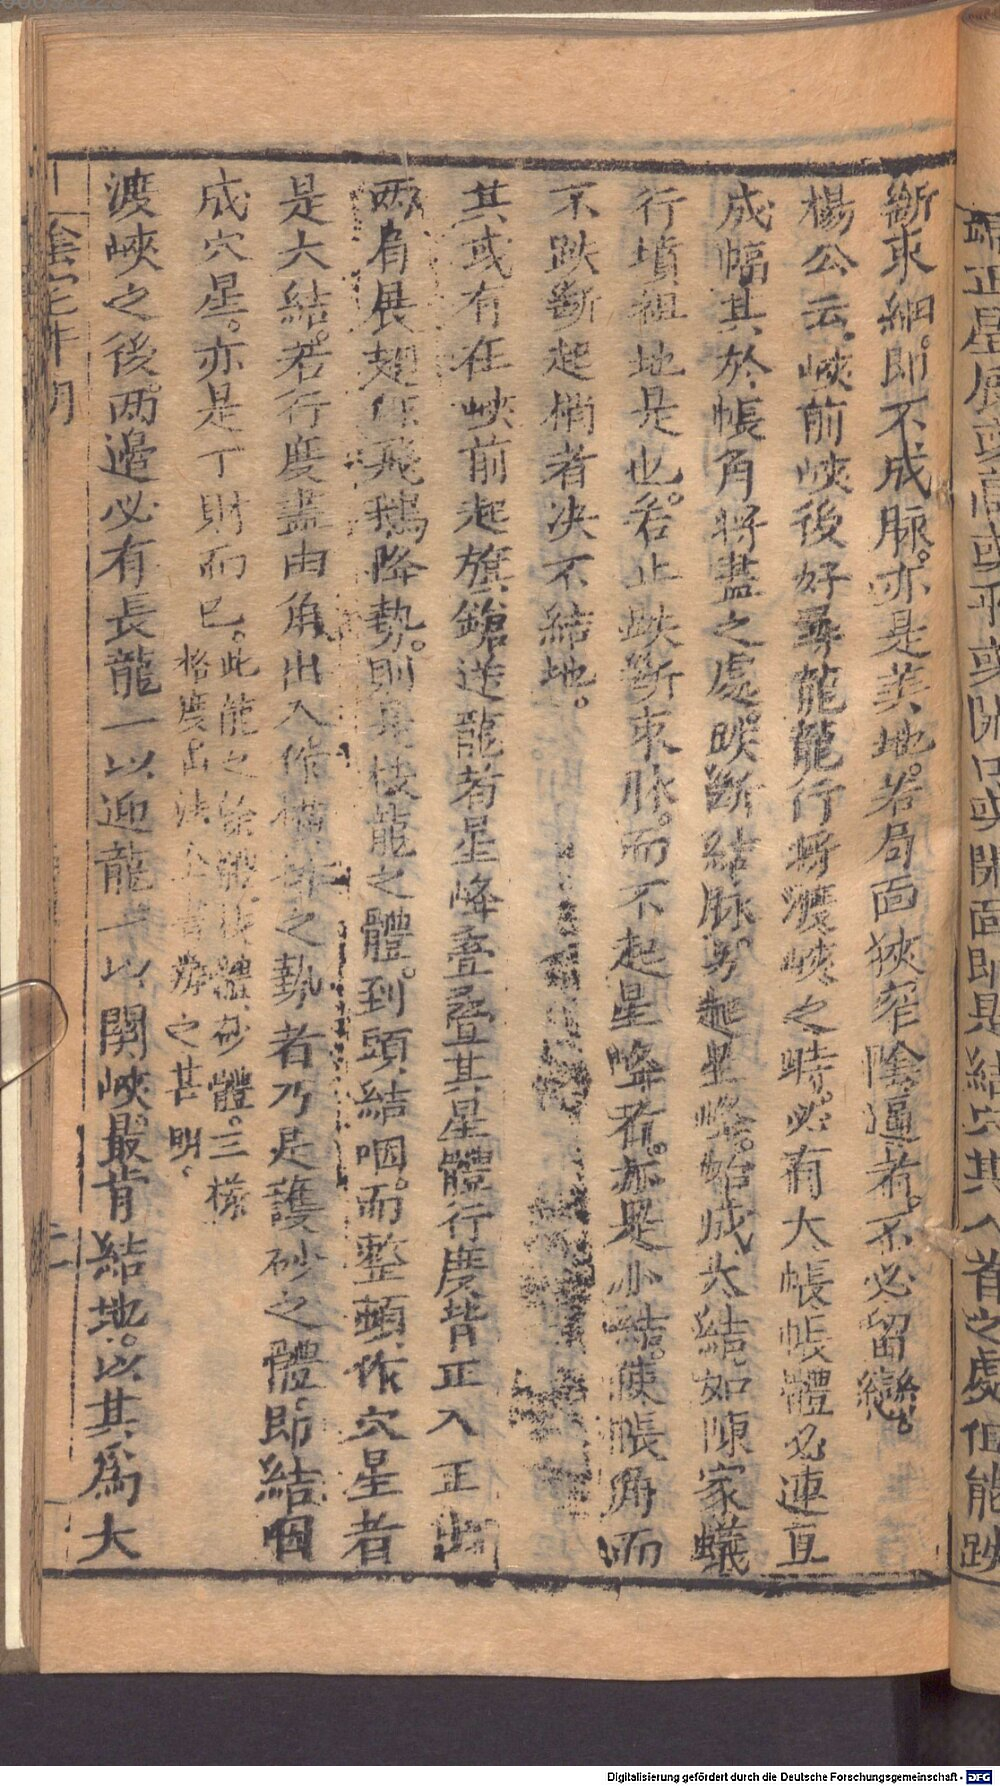 端正星辰或高或平或開口或開面即是結穴其入首之處但能跌
斷束細。即不成脉。亦是美地。若局面狹窄陰逼者。不必留戀。
楊公云。峽前峽後好尋龍龍行將渡峽之時。必有大帳帳體必連亘
成幅其於帳角將盡之處。跌斷結脉。另起星峰。始成大結如陳家蟻
行墳祖地是也。若止跌斷束脉。而不起星峰者。亦是小結。使帳角而
不跌斷起梢者决不結地。
其或有在峽前起旗鎗送龍者星峰疊疊其星體行度皆正入正出
兩肩展翅作飛鵝降勢。則是枝龍之體。到頭結咽。而整頓作穴星者
是大結。若行度盡由角出入作橫斜之勢者乃是護砂之體即結咽
成穴星。亦是丁財而已。
此龍之餘體後體砂體。三樣
格度出法全書辨之甚明、
渡峽之後。兩邊必有長龍一以迎龍一以関峽。最肯結地。以其爲大
陰宅
Digitalisierung gefördert durch die Deutsche Forschungsgemeinschaft - DFG